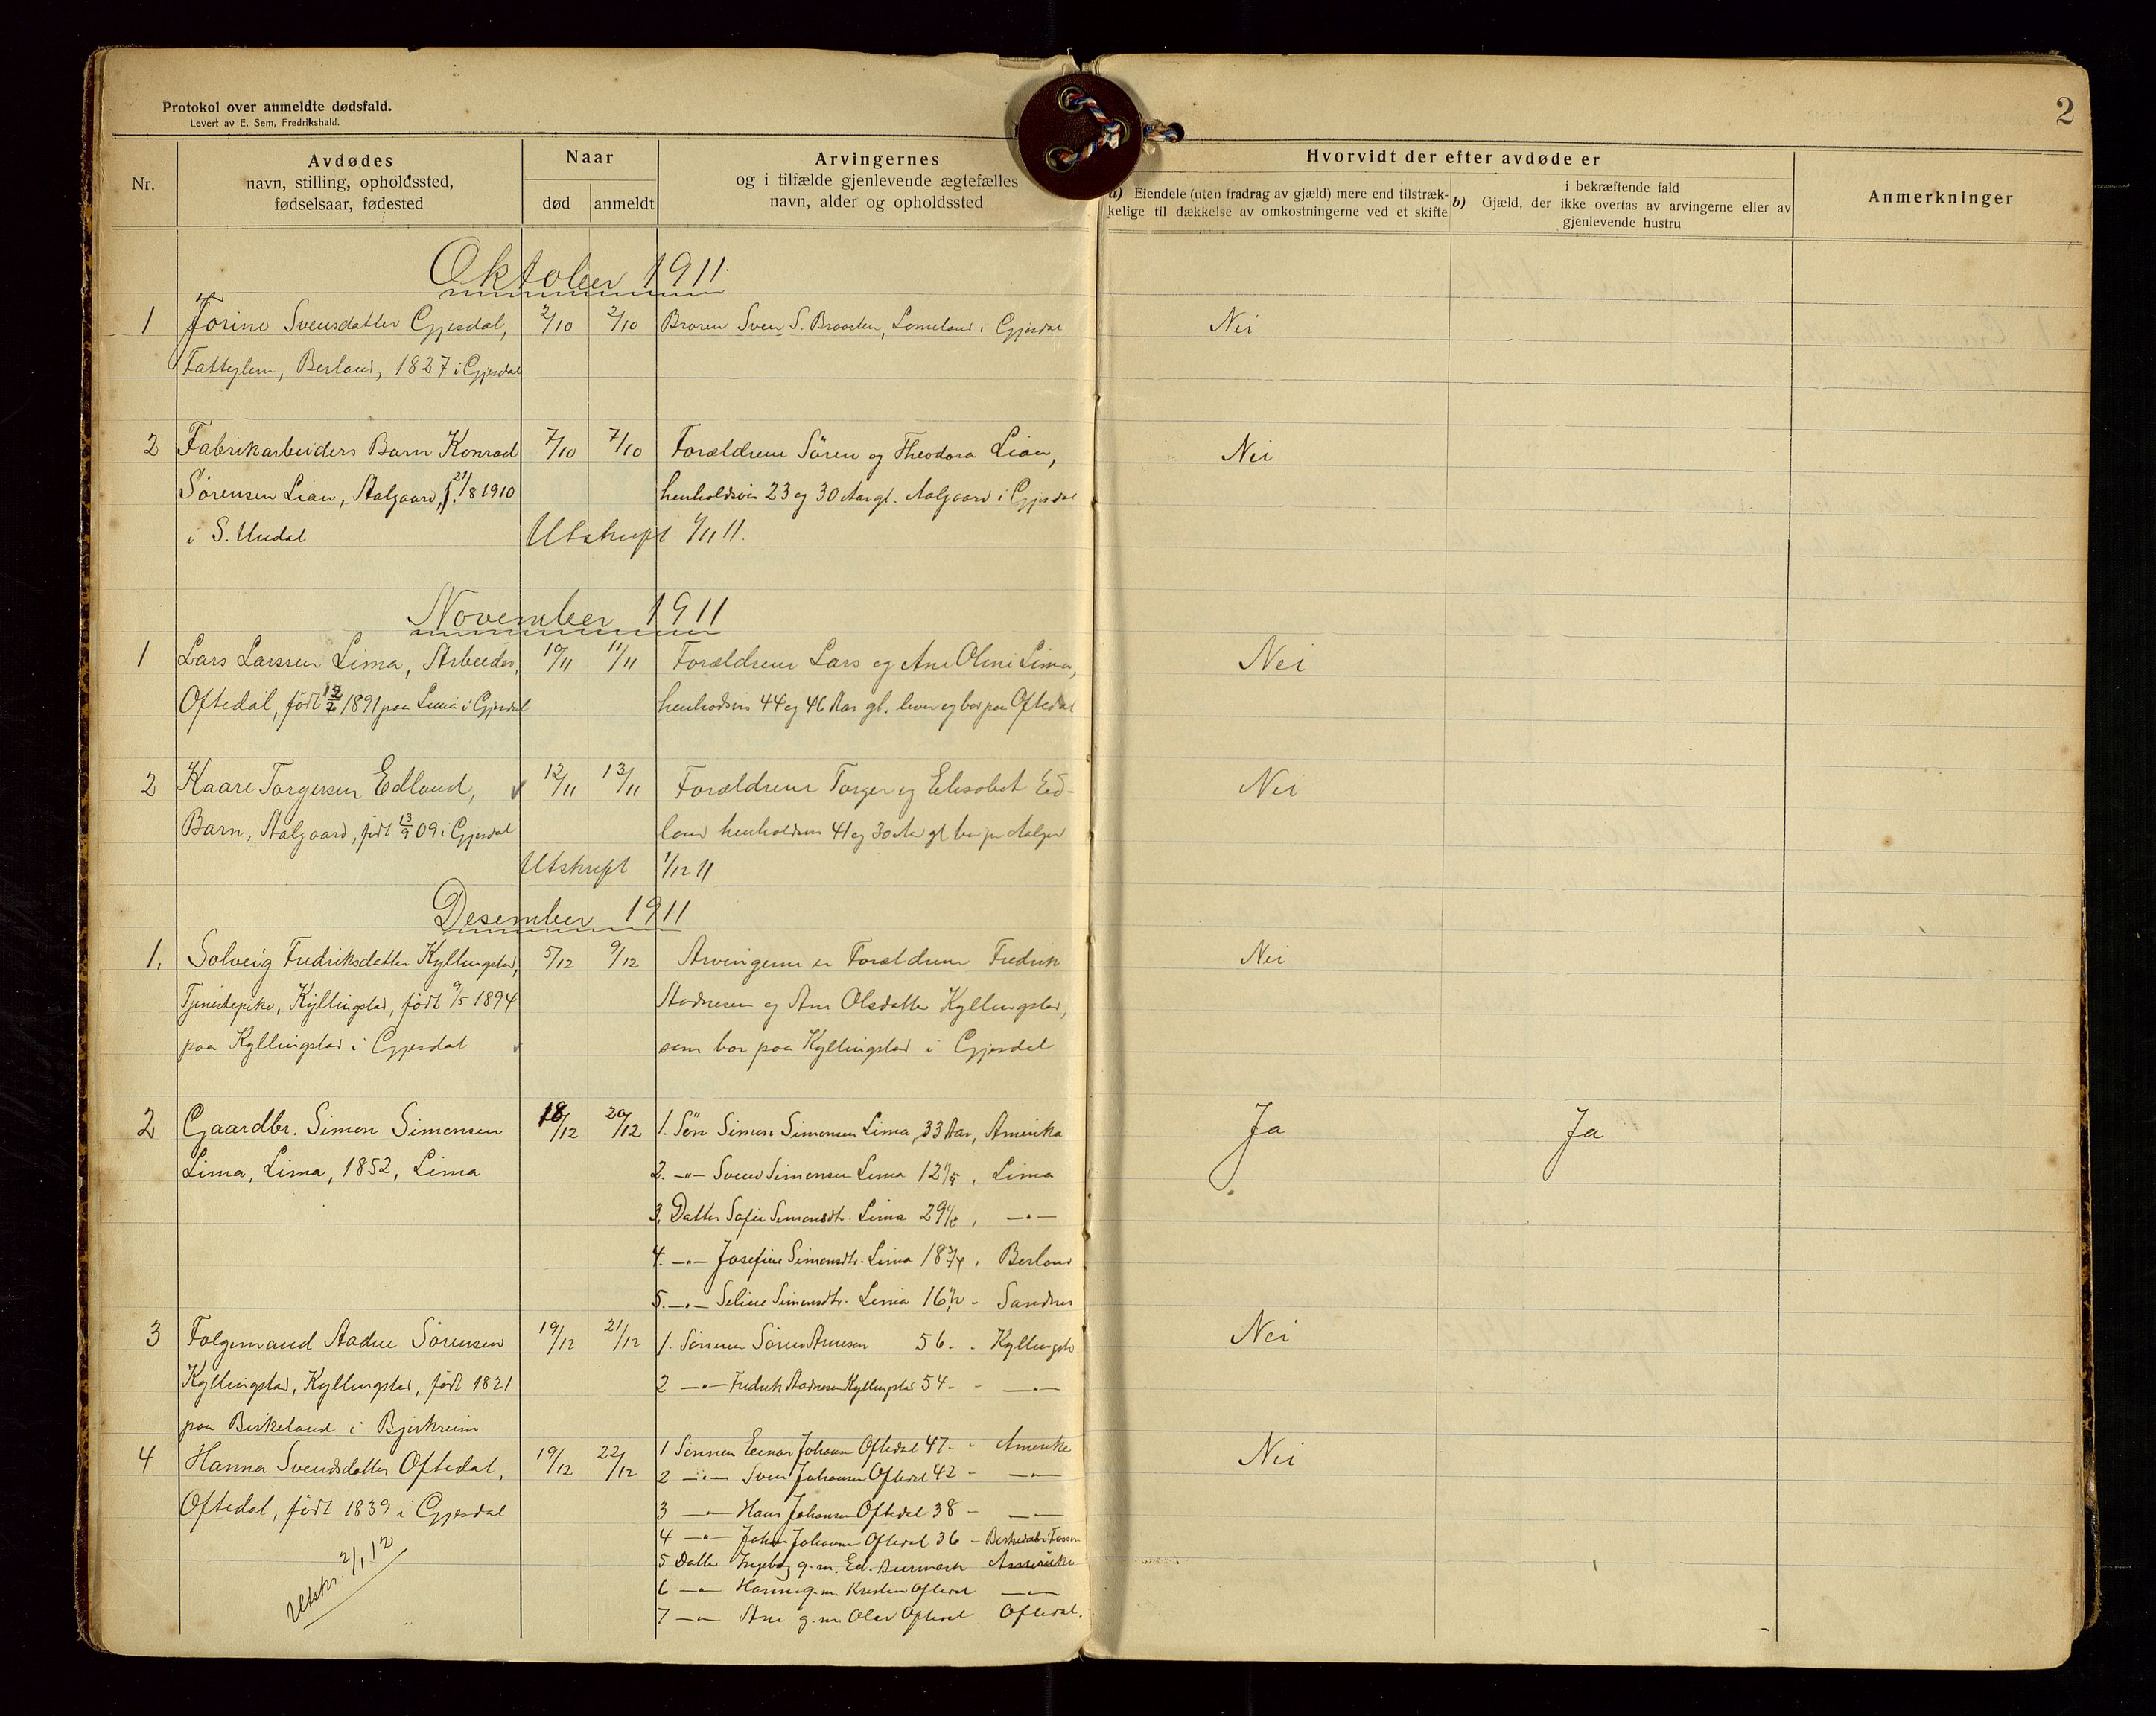 Protokol over anmeldte dødsfald.
Levert av E. Sem, Fredrikshald.
2
Nr.
Avdødes
navn, stilling, opholdssted,
fødselsaar, fødested
Naar
død
anmeldt
Arvingernes
og i tilfælde gjenlevende ægtefælles
navn, alder og opholdssted
Hvorvidt der efter avdøde er
a) Eiendele (uten fradrag av gjæld) mere end tilstræk-
kelige til dækkelse av omkostningerne ved et skifte
i bekræftende fald
b) Gjæld, der ikke overtas av arvingerne eller av
gjenlevende hustru
Anmerkninger
Oktober 1911.
1 Jorine Svensdatter Gjesdal, 2/10 2/10 Broren Sven S. Lomeland i Gjesdal Nei
Fattiglem, Berland, 1827 i Gjesdal
2 Fabrikarbeiders Barn Konrad 7/10 7/10 Forældrene Sören og Theodora Lian, Nei
Sörensen Lian, Aalgaard, f. 21/8 1910 henholdsvis 23 og 30 Aar gl. Aalgaard i Gjesdal
i S. Undal Utskrift 1/11 11.
November 1911
1 Lars Larssen Lima, Arbeider, 10/11 11/11 Forældrene Lars og Ane Oline Lima, Nei
Oftedal, født 12/2 1891 paa Lima i Gjesdal henholdsvis 44 og 46 Aar gl. lever og bor paa Oftedal
2 Kaare Torgersen Edland, 12/11 13/11 Forældrene Torger og Elisabet Ed- Nei
Barn, Aalgaard, født 13/9 09 i Gjesdal land henholdsvis 41 og 30 Aar gl bor paa Aalgaard
Utskrift 1/12 11
Desember 1911
1. Solveig Fredriksdatter Kyllingstad, 5/12 9/12 Arvingerne er Forældrene Fredrik Nei
Tjenestepike, Kyllingstad, født 9/5 1894 Aadnesen og Ane Olsdatter Kyllingstad,
paa Kyllingstad i Gjesdal som bor paa Kyllingstad i Gjesdal
2 Gaardbr. Simon Simonsen 18/12 20/12 1. Sön Simon Simonsen Lima, 33 Aar, Amerika Ja Ja
Lima, Lima, 1852, Lima 2. -"- Svend Simonsen Lima 12 , Lima
3. Datter Sofie Simonsdtr. Lima 29 , -"-
4. -"- Josefine Simonsdtr. Lima 18 3/4 , Berland
5. -"- Seline Simonsdtr. Lima 16 1/2 - Sandnes
3 Folgemand Aadne Sörensen 19/12 21/12 1. Sönnen Sören Arnesen 56 - - Kyllingst Nei
Kyllingstad, Kyllingstad, født 1821 2 -"- Fredrik Aadnesen Kyllingstad 54 - - -"-
paa Birkeland i Bjerkreim
4 Hanna Svendsdatter Oftedal, 19/12 22/12 1 Sönnen Einar Johansen Oftedal 47 - - Amerika Nei
2 -"- Sven Johansen Oftedal 42 - -"-
Oftedal, født 1839 i Gjesdal 3 -"- Hans Johansen Oftedal 38 - -"-
4 -"- Johan Johansen Oftedal 36 -
5 Datter Ingeborg g. m. Ed. Amerika
Utskr. 2/1 12 6 -"- Hanne g. m. Kristen Oftedal -"-
7 -"- Ane g. m. Olav Oftedal Oftedal.